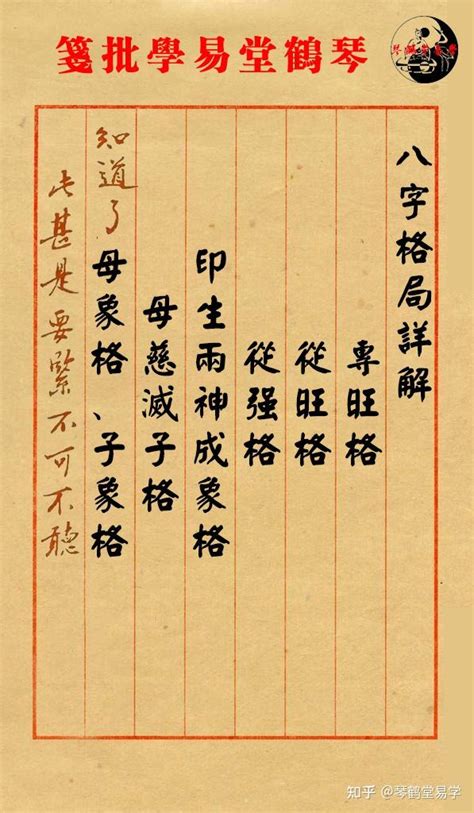 琴鶴堂易學批箋
八字格局詳解
專旺格
從旺格
從强格
印生兩神成象格
母慈滅子格
知道了
母象格、子象格
此甚是要緊不可不聽
知乎 @琴鹤堂易学